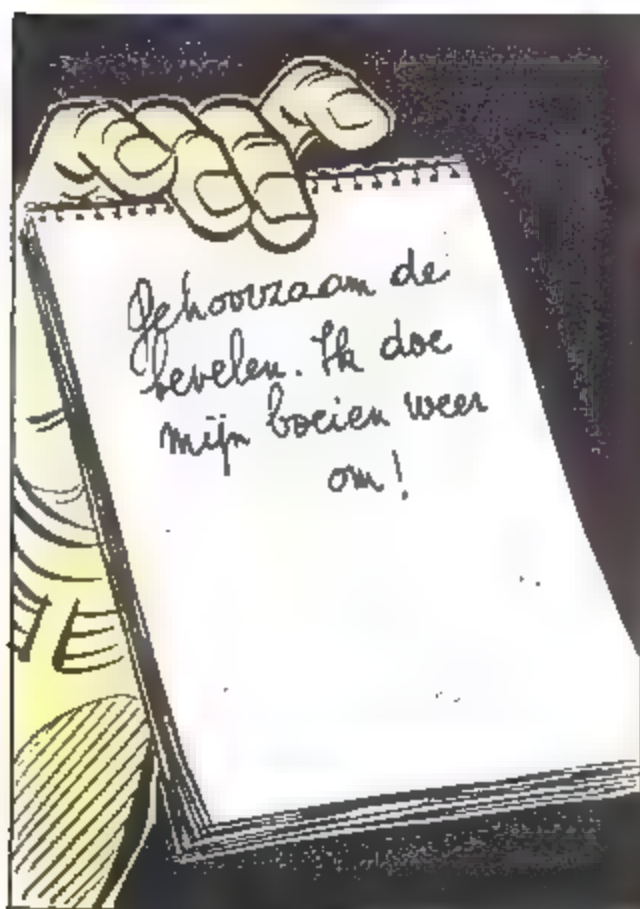 Gehoorzaam de
bevelen. Ik doe
mijn boeien weer
om!